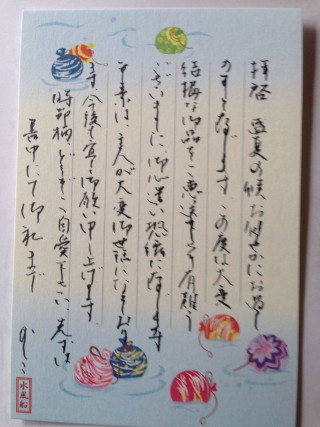 拝啓 盛夏の候お健やかにお過し
のことと存じます。この度は大変
結構な御品をご恵送下さり有難う
ございました。御心遣い恐縮に存じます
平素は、主人が大変御世話になりおり
ます。今後も宜しく御願い申し上げます。
時節柄、どうぞご自愛下さい。先ずは
暑中にて御礼まで
かしこ
水風船